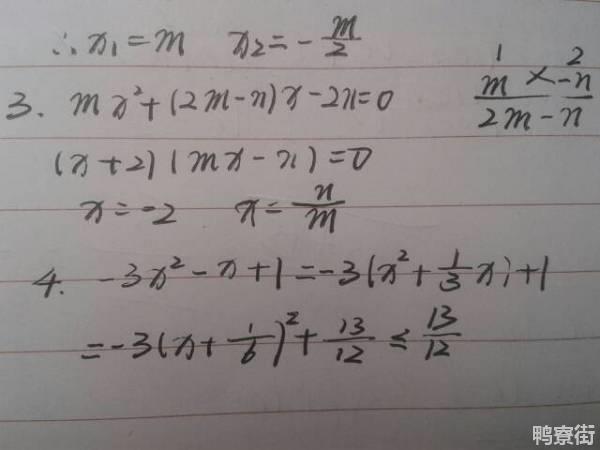 ∴ x₁ = m x₂ = -m/2
3. mx² + (2m-n)x - 2n = 0
1 2
m × -n
2m - n
(x+2)(mx-n) = 0
x = -2 x = n/m
4. -3x² - x + 1 = -3(x² + 1/3 x) + 1
= -3(x + 1/6)² + 13/12 ≤ 13/12
鸭寮街